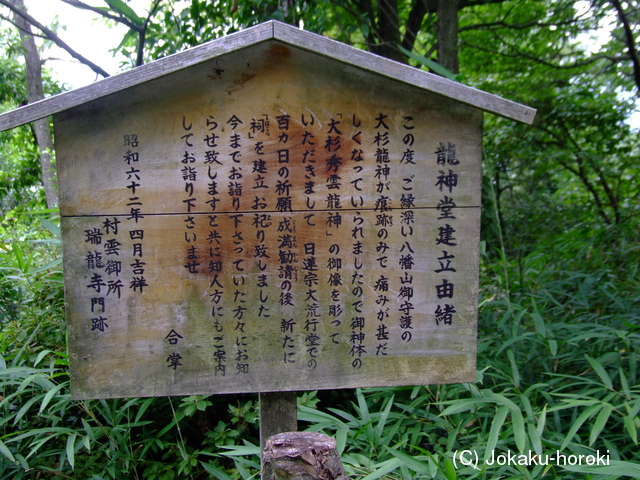 龍神堂建立由緒
この度 ご縁深い八幡山御守護の
大杉龍神が痕跡のみで 痛みが甚だ
しくなっていられましたので御神体の
「大杉秀雲龍神」の御像を彫って
いただきまして 日蓮宗大荒行堂での
百ヵ日の祈願成満勧請の後 新たに
「祠」を建立お祀り致しました
今までお詣り下さっていた方々にお知
らせ致しますと共に知人方にもご案内
してお詣り下さいませ
合掌
昭和六十二年四月吉祥
村雲御所
瑞龍寺門跡
(C) Jokaku-horoki